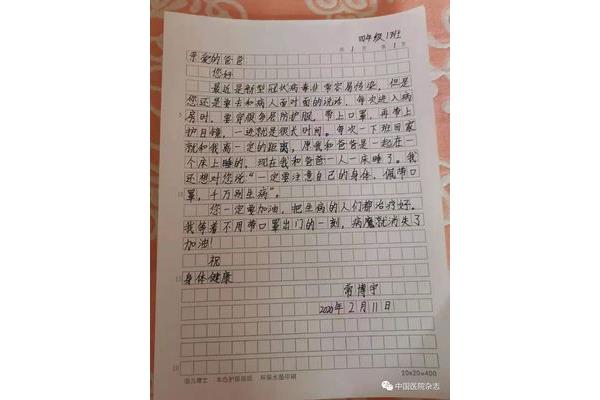 四年级13班
共 1 页 第 1 页
亲爱的爸爸
您好
最近是新型冠状病毒非常容易传染，但是
您还是要去和病人面对面的说话，每次进入病
5
房时，要穿很多层防护服，带上口罩，再带上
护目镜，一进就是很长时间。每次一下班回家
就和我离一定的距离，原我和爸爸是一起在一
个床上睡的，现在我和爸爸一人一床睡了。我
还想对您说“一定要注意自己的身体，佩带口
10
罩，千万别生病”。
您一定要加油，把生病的人们都治疗好。
我等着不用带口罩出门的一刻，病魔就消失了
加油！
祝
15
身体健康
博宇
2020年2月11日
20×20=400
中国医院杂志